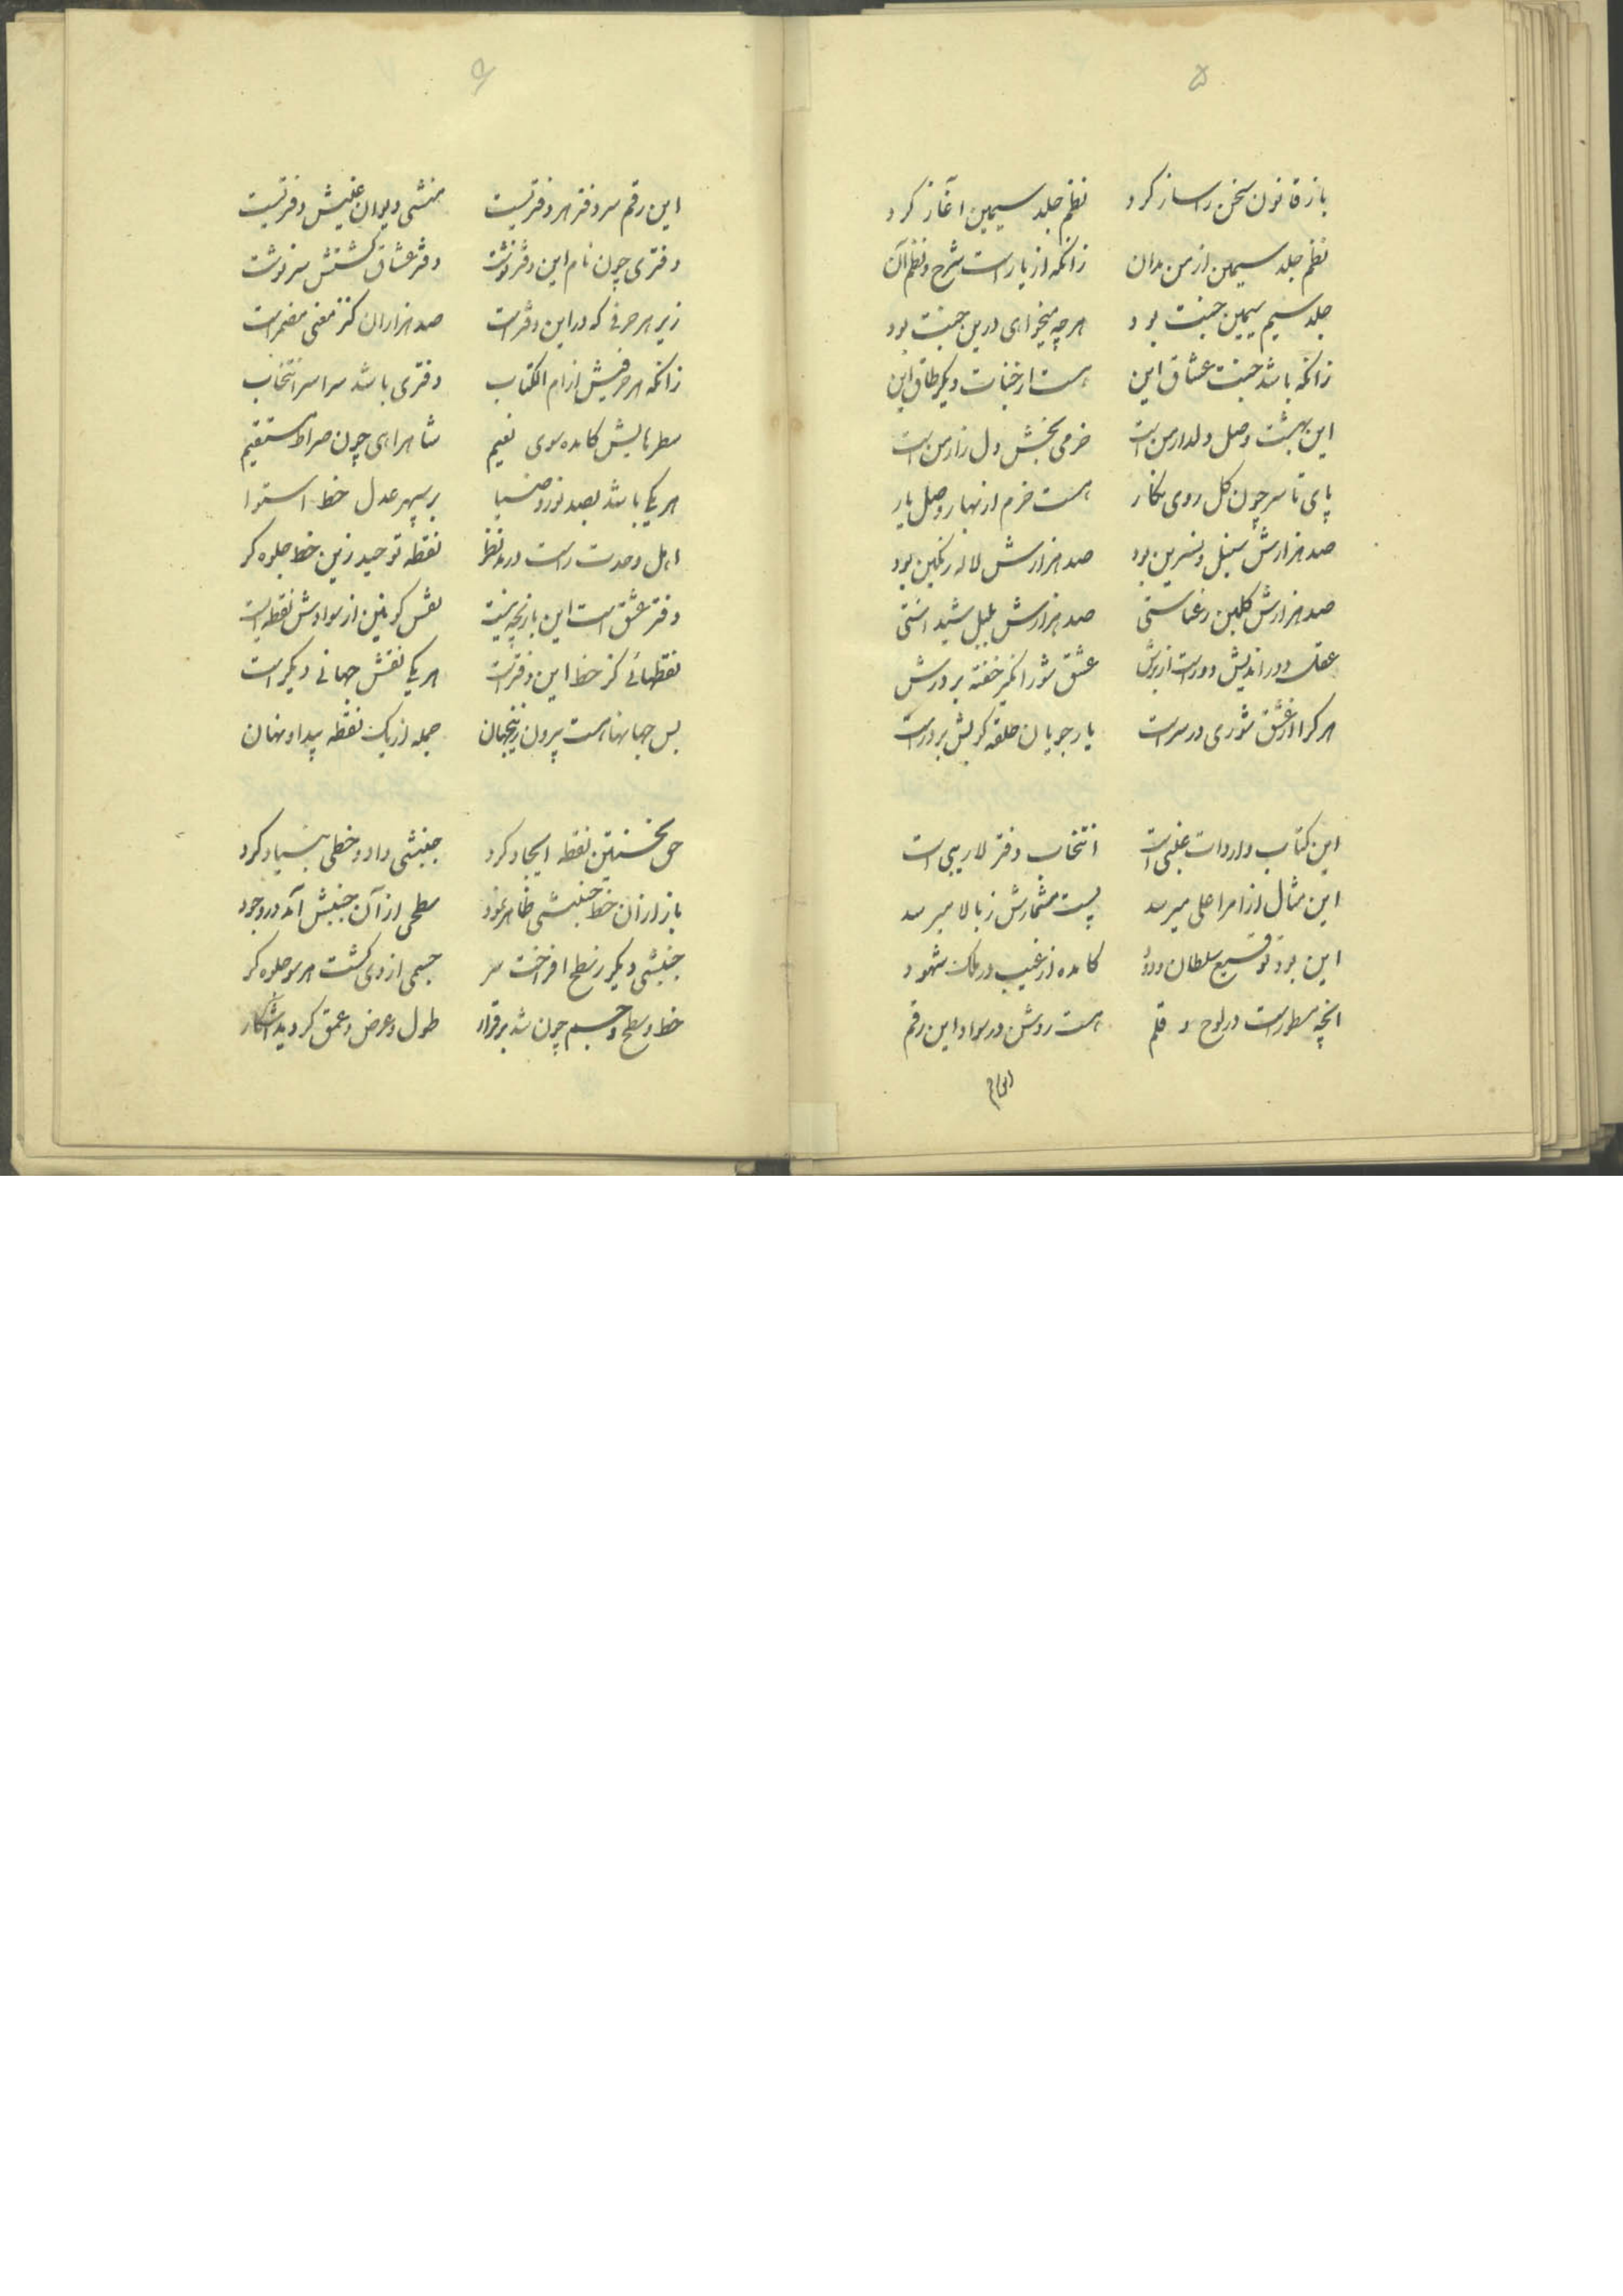 ۵
باز قانون سخن را ساز کرد نظم جلد سیمین آغاز کرد
نظم جلد سیمین از من مدان زانکه از یار است شرح و نظم آن
جلد سیم سیمین جنت بود هرچه میخواهی درین جنت بود
زانکه باشد جنت عشاق این هست از جنات دیگر طاق این
این بهشت وصل دلدار من است خرمی بخش دل زار من است
پای تا سر چون گل روی نگار هست خرم از بهار وصل یار
صد هزارش سنبل و نسرین بود صد هزارش لاله رنگین بود
صد هزارش گلبن رعناستی صد هزارش بلبل شیداستی
عقل دور اندیش دور است از برش عشق شورانگیز خفته بر درش
هر کرا از عشق شوری در سر است یار جویان حلقه کوبش بر در است
این کتاب واردات غیبی است انتخاب دفتر لاریبی است
این مثال از امر اعلی میرسد پست مشمارش ز بالا میرسد
این بود توقیع سلطان ودود کامده از غیب در ملک شهود
انچه مسطور است در لوح و قلم هست روشن در سواد این رقم
این رقم
۶
این رقم سر دفتر هر دفتریست منشی دیوان غیبش دفتریست
دفتری چون نام این دفتر نوشت دفتر عشاق گشتش سرنوشت
زیر هر حرفی که در این دفتر است صد هزاران کنز معنی مضمر است
زانکه هر حرفیش از ام الکتاب دفتری باشد سراسر انتخاب
سطرهایش کامده سوی نعیم شاهراهی چون صراط مستقیم
هر یکی باشد بصد نور و ضیا بر سپهر عدل خط استوا
اهل وحدت راست در مد نظر نقطه توحید زین خط جلوه گر
دفتر عشق است این بازیچه نیست نقش کونین از سوادش نقطه ایست
نقطهائی کز خط این دفتر است هر یکی نقش جهانی دیگر است
بس جهانها هست بیرون زینجهان جمله از یک نقطه پیدا و نهان
حق نخستین نقطه ایجاد کرد جنبشی داد و خطی بنیاد کرد
باز از آن خط جنبشی ظاهر نمود سطحی از آن جنبش آمد در وجود
جنبشی دیگر ز سطح افراخت سر جسمی از وی گشت هر سو جلوه گر
خط و سطح و جسم چون شد برقرار طول و عرض و عمق گردید آشکار